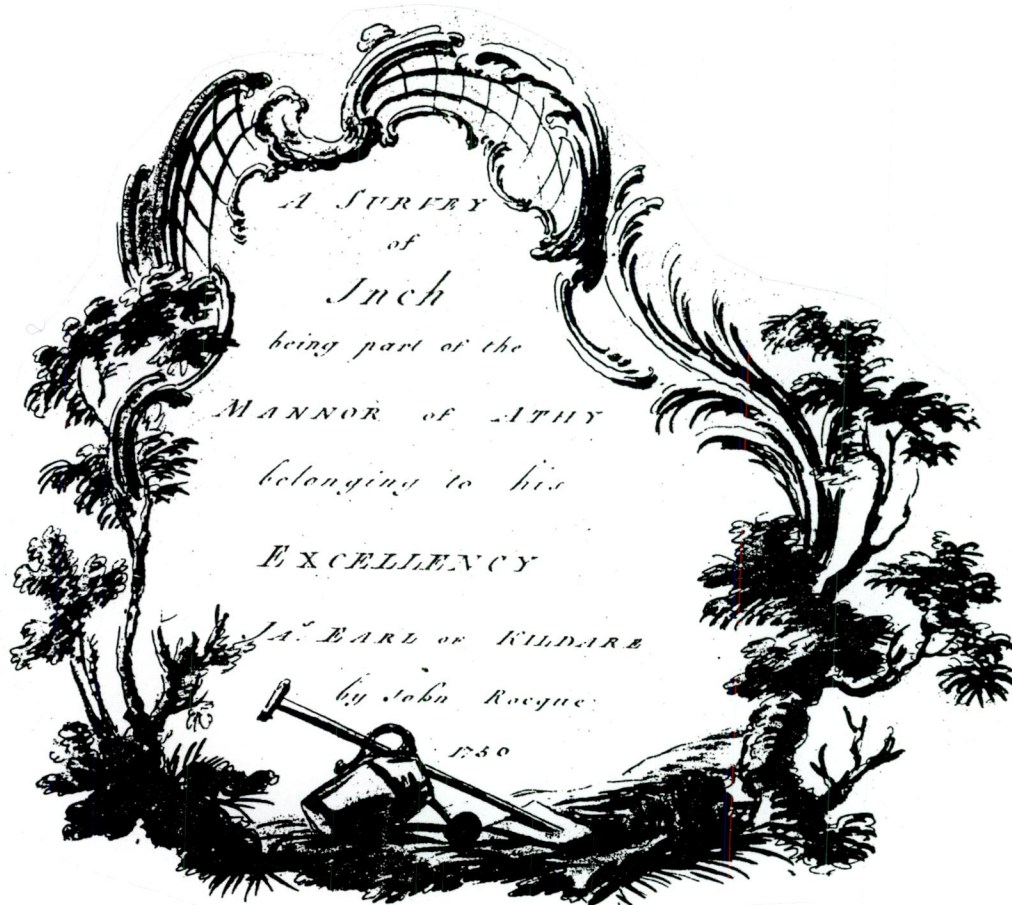 A SURVEY
of
Inch
being part of the
MANNOR of ATHY
belonging to his
EXCELLENCY
Jas. EARL OF KILDARE
by John Rocque
1750